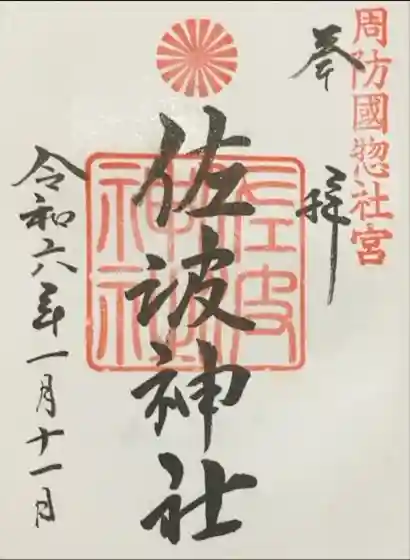 周防國惣社宮
奉拝
佐波神社
佐波
神社
令和六年一月十一日